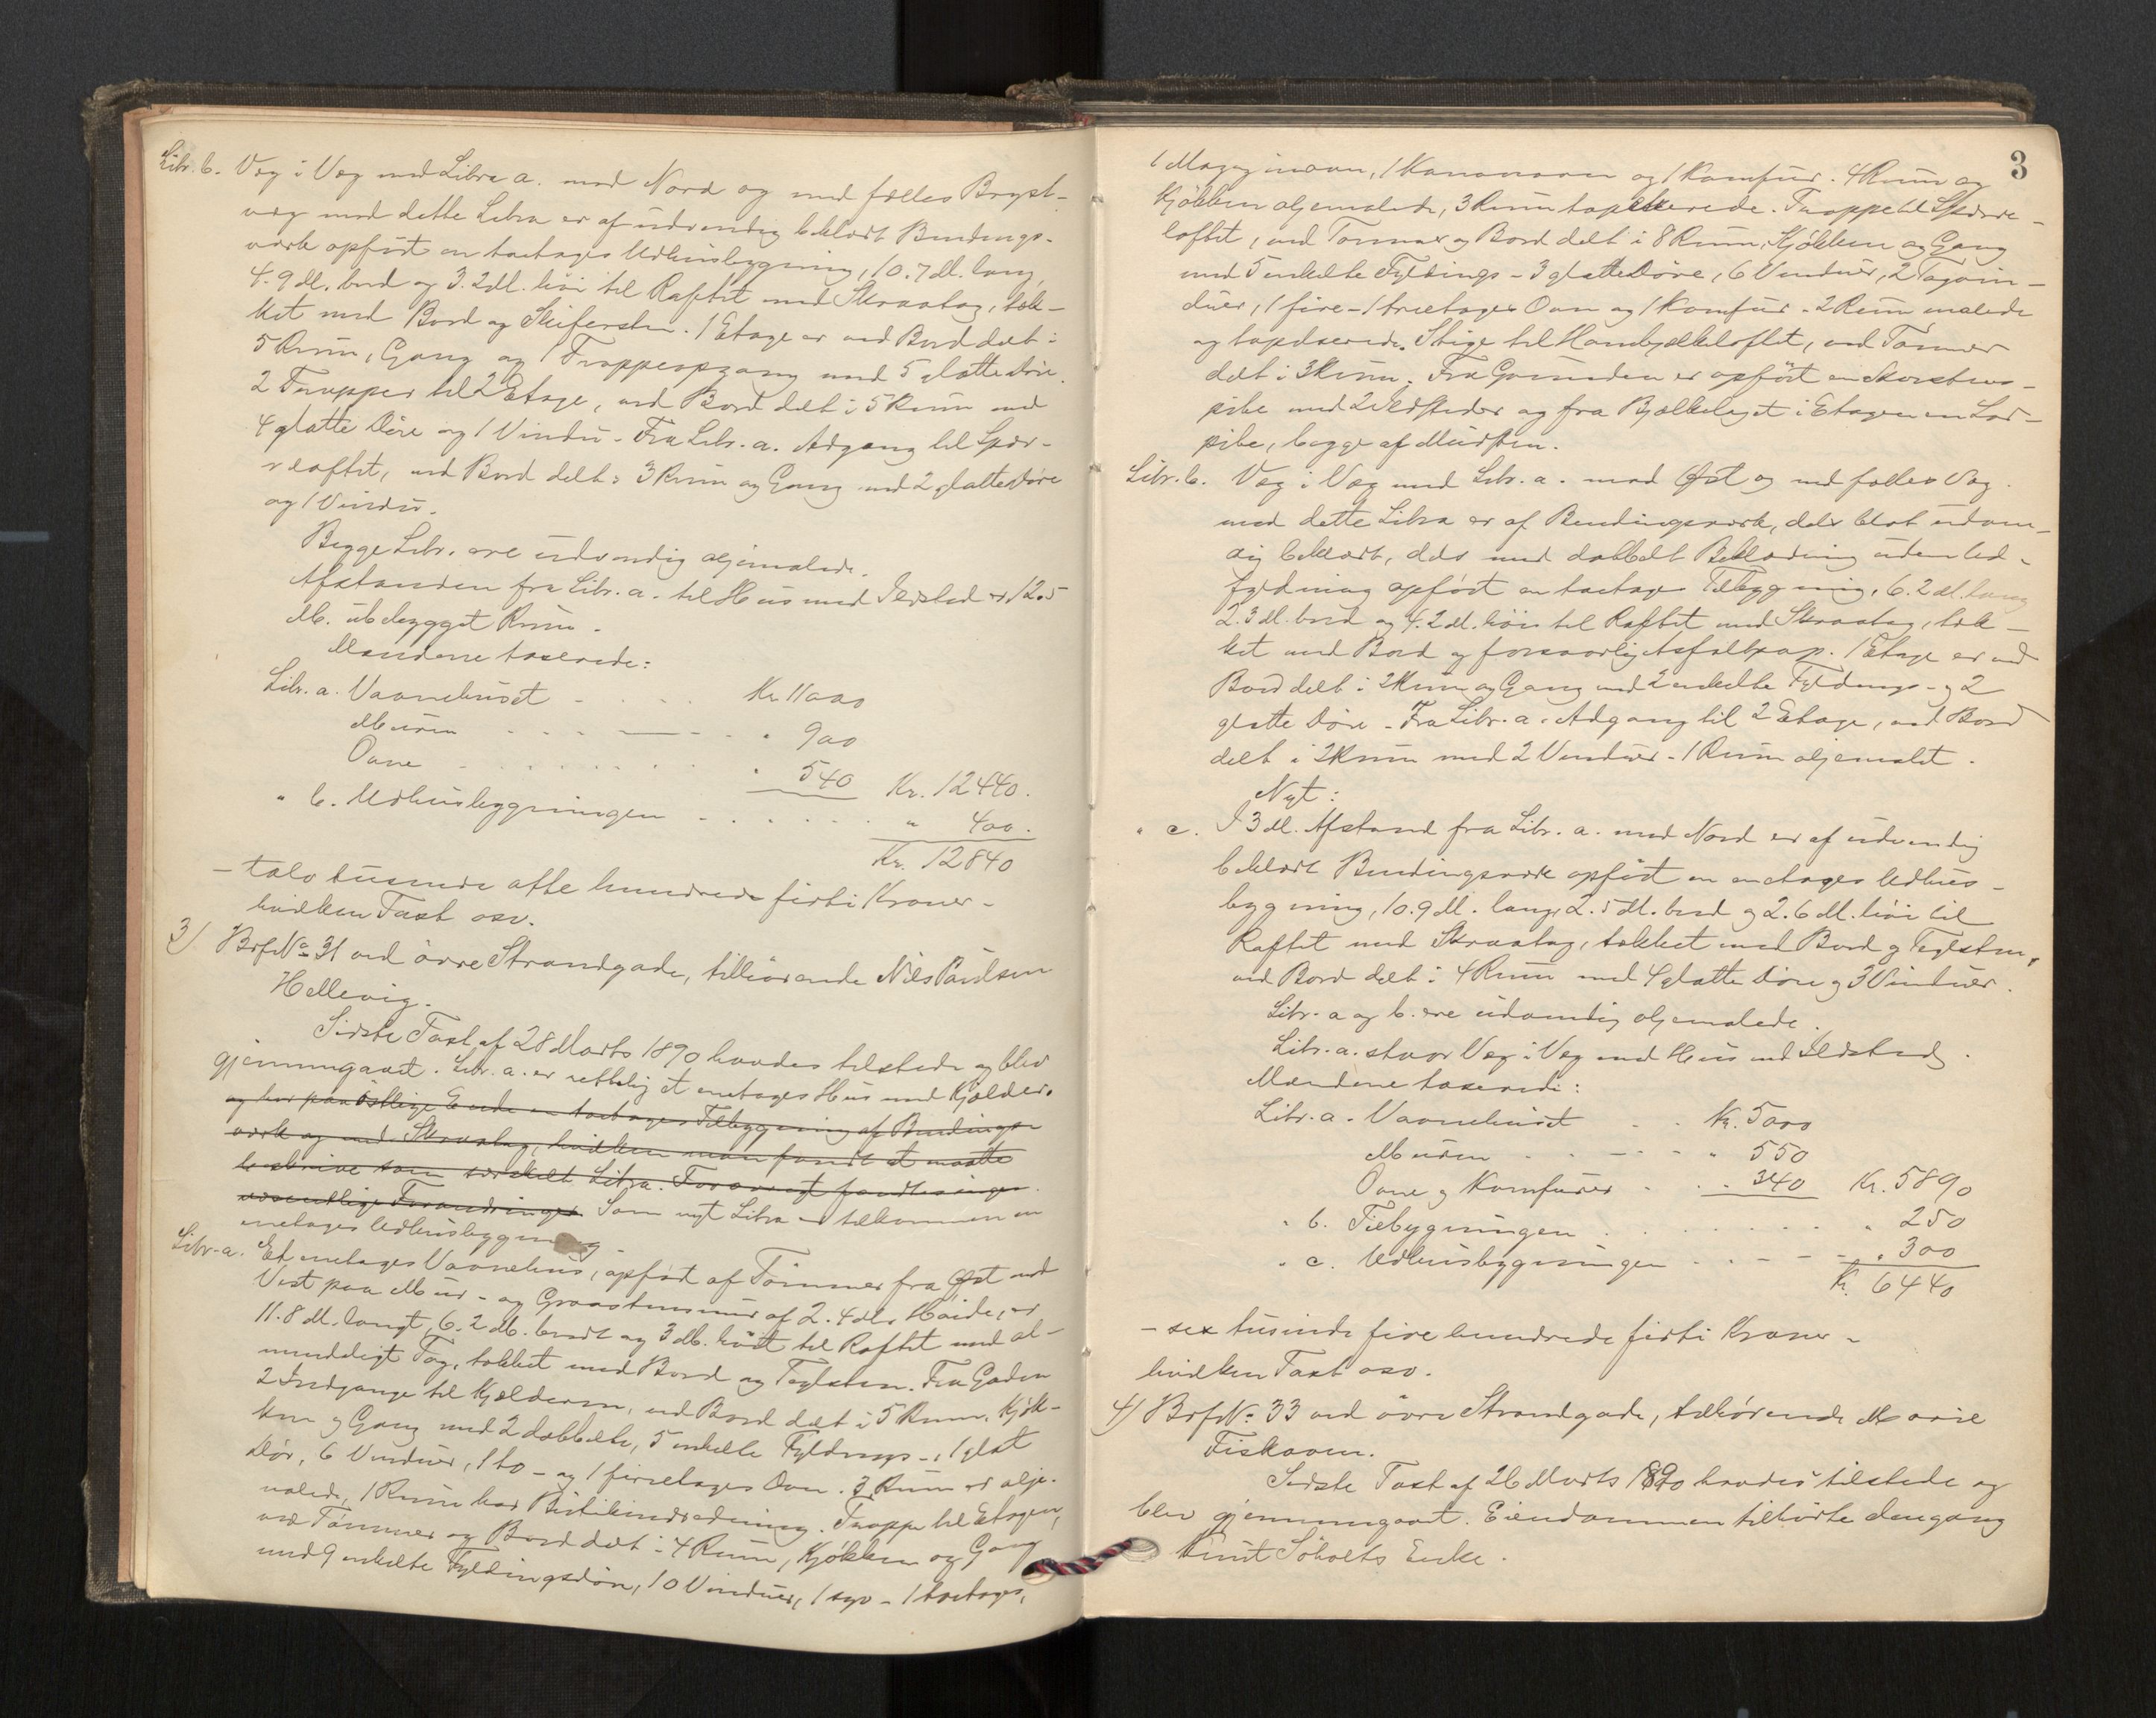 Litr. b. Væg i Væg med Litra a. mod Nord og med fælles Bryst-
væg med dette Litra er af udvendig beklædt Bindings-
værk opført en toetages Udhusbygning, 10.7 M. lang,
4.9 M. bred og 3.2 M. høi til Raftet med Skraatag, tæk-
ket med Bord og Skifersten. 1 Etage er ved Bord delt i
5 Rum, Gang og 1 Trappeopgang med 5 glatte Døre.
2 Trapper til 2 Etage, ved Bord delt i 5 Rum med
4 glatte Døre og 1 Vindu. Fra Litr. a. Adgang til Spær-
reloftet, ved Bord delt i 3 Rum og Gang med 2 glatte Døre
og 1 Vindu.
Begge Litr. ere udvendig oljemalede.
Afstanden fra Litr. a. til Hus med Ildsted er 12.5
M. ubebygget Rum.
Mændene taxerede:
Litr. a. Vaanehuset . . . . Kr. 11000
Muren . . . . . . " 900
Ovne . . . . . . . " 540 Kr. 12440.
" b. Udhusbygningen . . . . . . " 400.
Kr. 12840
- tolv tusinde otte hundrede firti Kroner -
hvilken Taxt osv.
3) Brf. No 31 ved øvre Strandgade, tilhørende Nils Paulsen
Hellevig.
Sidste Taxt af 28 Marts 1890 havdes tilstede og blev
gjennemgaaet. Litr. a. er rettelig et enetages Hus med Kjelder.
og har paa østlige Ende en toetages Tilbygning af Bindings-
værk og med Skraatag, hvilken man fandt at maatte
beskrive som særskilt Litra. Forøvrigt fandtes ingen
væsentlige Forandringer. Som nyt Litra er tilkommen en
enetages Udhusbygning
Litr. a. Et enetages Vaanehus, opført af Tømmer fra Øst mod
Vest paa Mur- og Graastensmur af 2.4 M. Høide, er
11.8 M. langt, 6.2 M. bredt og 3 M. høit til Raftet med al-
mindeligt Tag, tækket med Bord og Teglsten. Fra Gaden
2 Indgange til Kjelderen, ved Bord delt i 5 Rum, Kjøk-
ken og Gang med 2 dobbelte, 5 enkelte Fyldings-, 1 glat
Dør, 6 Vinduer, 1 to- og 1 fireetages Ovn. 3 Rum er olje-
malede, 1 Rum har Butikindredning. Trappe til Etagen,
ved Tømmer og Bord delt i 4 Rum, Kjøkken og Gang
med 9 enkelte Fyldingsdøre, 10 Vinduer, 1 syv- 1 toetages,
3
1 Magazinovn, 1 Kanonovn og 1 Komfur. 4 Rum og
Kjøkken oljemalede, 3 Rum tapetserede. Trappe til Spærre-
loftet, ved Tømmer og Bord delt i 8 Rum, Kjøkken og Gang
med 5 enkelte Fyldings- 3 glatte Døre, 6 Vinduer, 2 Tagvin-
duer, 1 fire- 1 treetages Ovn og 1 Komfur. 2 Rum malede
og tapetserede. Stige til Hanebjelkeloftet, ved Tømmer
delt i 3 Rum. Fra Grunden er opført en Skorstens-
pibe med 2 Ildsteder og fra Bjelkelaget i Etagen en Lod-
pibe, begge af Mursten.
Litr. b. Væg i Væg med Litr. a. mod Øst og med fælles Væg
med dette Litra er af Bindingsværk, dels blot udven-
dig beklædt, dels med dobbelt Beklædning uden Ud-
fyldning opført en toetages Tilbygning, 6.2 M. lang
2.3 M. bred og 4.2 M. høi til Raftet med Skraatag, tæk-
ket med Bord og forsvarlig Asfaltpap. 1 Etage er ved
Bord delt i 2 Rum og Gang med 2 enkelte Fyldings- og 2
glatte Døre. Fra Litr. a. Adgang til 2 Etage, ved Bord
delt i 2 Rum med 2 Vinduer. 1 Rum oljemalet.
Nyt:
" c. I 3 M. Afstand fra Litr. a. mod Nord er af udvendig
beklædt Bindingsværk opført en enetages Udhus-
bygning, 10.9 M. lang, 2.5 M. bred og 2.6 M. høi til
Raftet med Skraatag, tækket med Bord og Teglsten,
ved Bord delt i 4 Rum med 4 glatte Døre og 3 Vinduer.
Litr. a og b. ere udvendig oljemalede.
Litr. a. staar Væg i Væg med Hus med Ildsted.
Mændene taxerede:
Litr. a. Vaanehuset . . Kr. 5000
Muren . . . . . " 550
Ovne og Komfurer . . " 340 Kr. 5890
" b. Tilbygningen . . . . . . . " 250
" c. Udhusbygningen . . . . . " 300
Kr. 6440
- sex tusinde fire hundrede firti Kroner -
hvilken Taxt osv.
4) Brf. No 33 ved øvre Strandgade, tilhørende Marie
Fiskaaen.
Sidste Taxt af 26 Marts 1890 havdes tilstede og
blev gjennemgaaet. Eiendommen tilhørte dengang
Knut Søholts Enke.